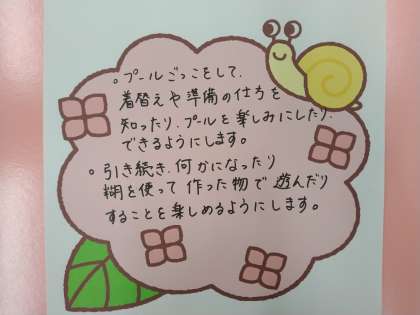 。プールごっこをして、
着替えや準備の仕方を
知ったり、プールを楽しみにしたり、
できるようにします。
。引き続き、何かになったり
糊を使って作った物で遊んだり
することを楽しめるようにします。